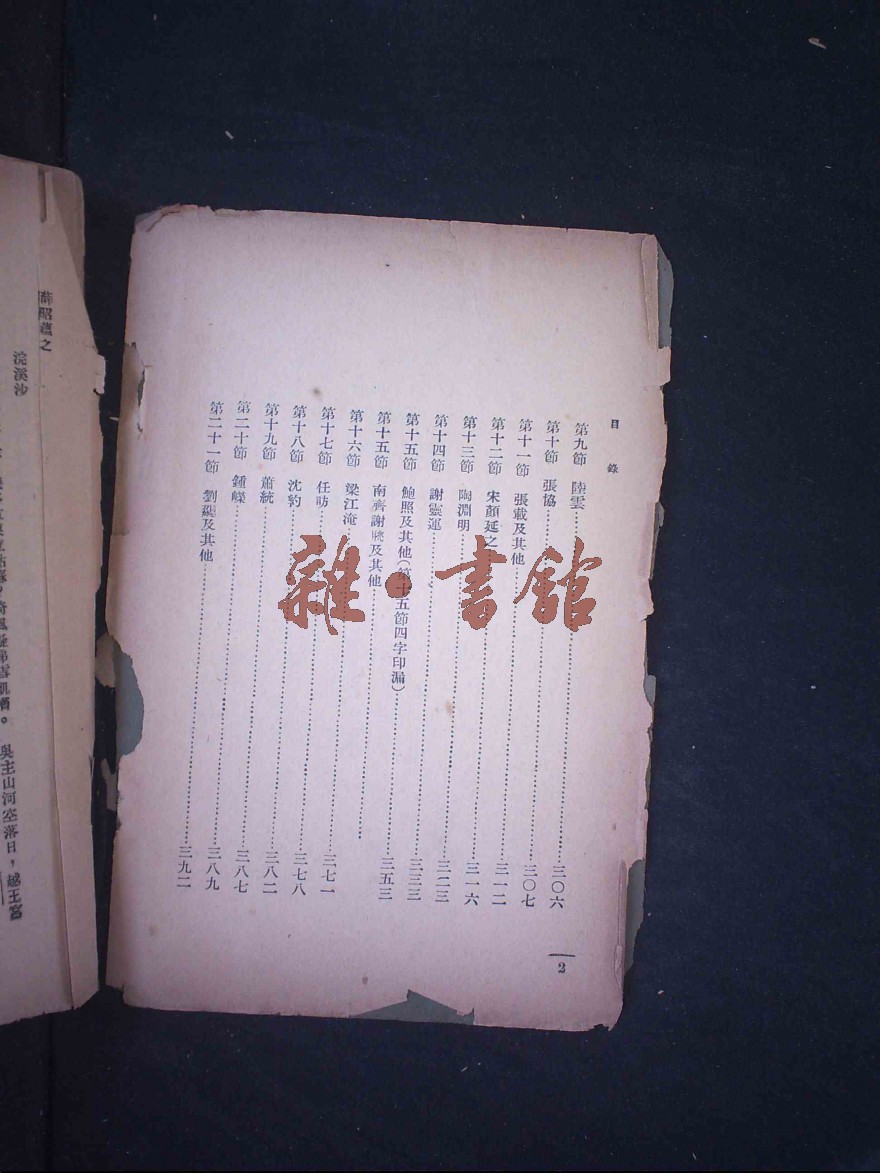 目錄
第九節 陸雲……三〇六
第十節 張協……三〇七
第十一節 張載及其他……三一二
第十二節 宋顏延之……三一六
第十三節 陶淵明……三二三
第十四節 謝靈運……三三三
第十五節 鮑照及其他（第十五節四字印漏）……三五三
第十五節 南齊謝朓及其他……
第十六節 梁江淹……三七一
第十七節 任昉……三七八
第十八節 沈豹……三八二
第十九節 蕭統……三八七
第二十節 鍾嶸……三八九
第二十一節 劉勰及其他……三九二
2
薛昭蘊之
浣溪沙
吳主山河空落日，越王宮
雜·書館